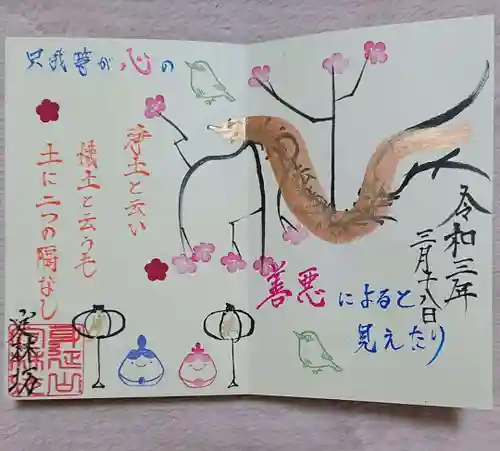 浄土と云い
穢土と云うも
土に二つの隔なし
只我等が心の
善悪によると
見えたり
令和三年
三月十八日
定林坊
身延山